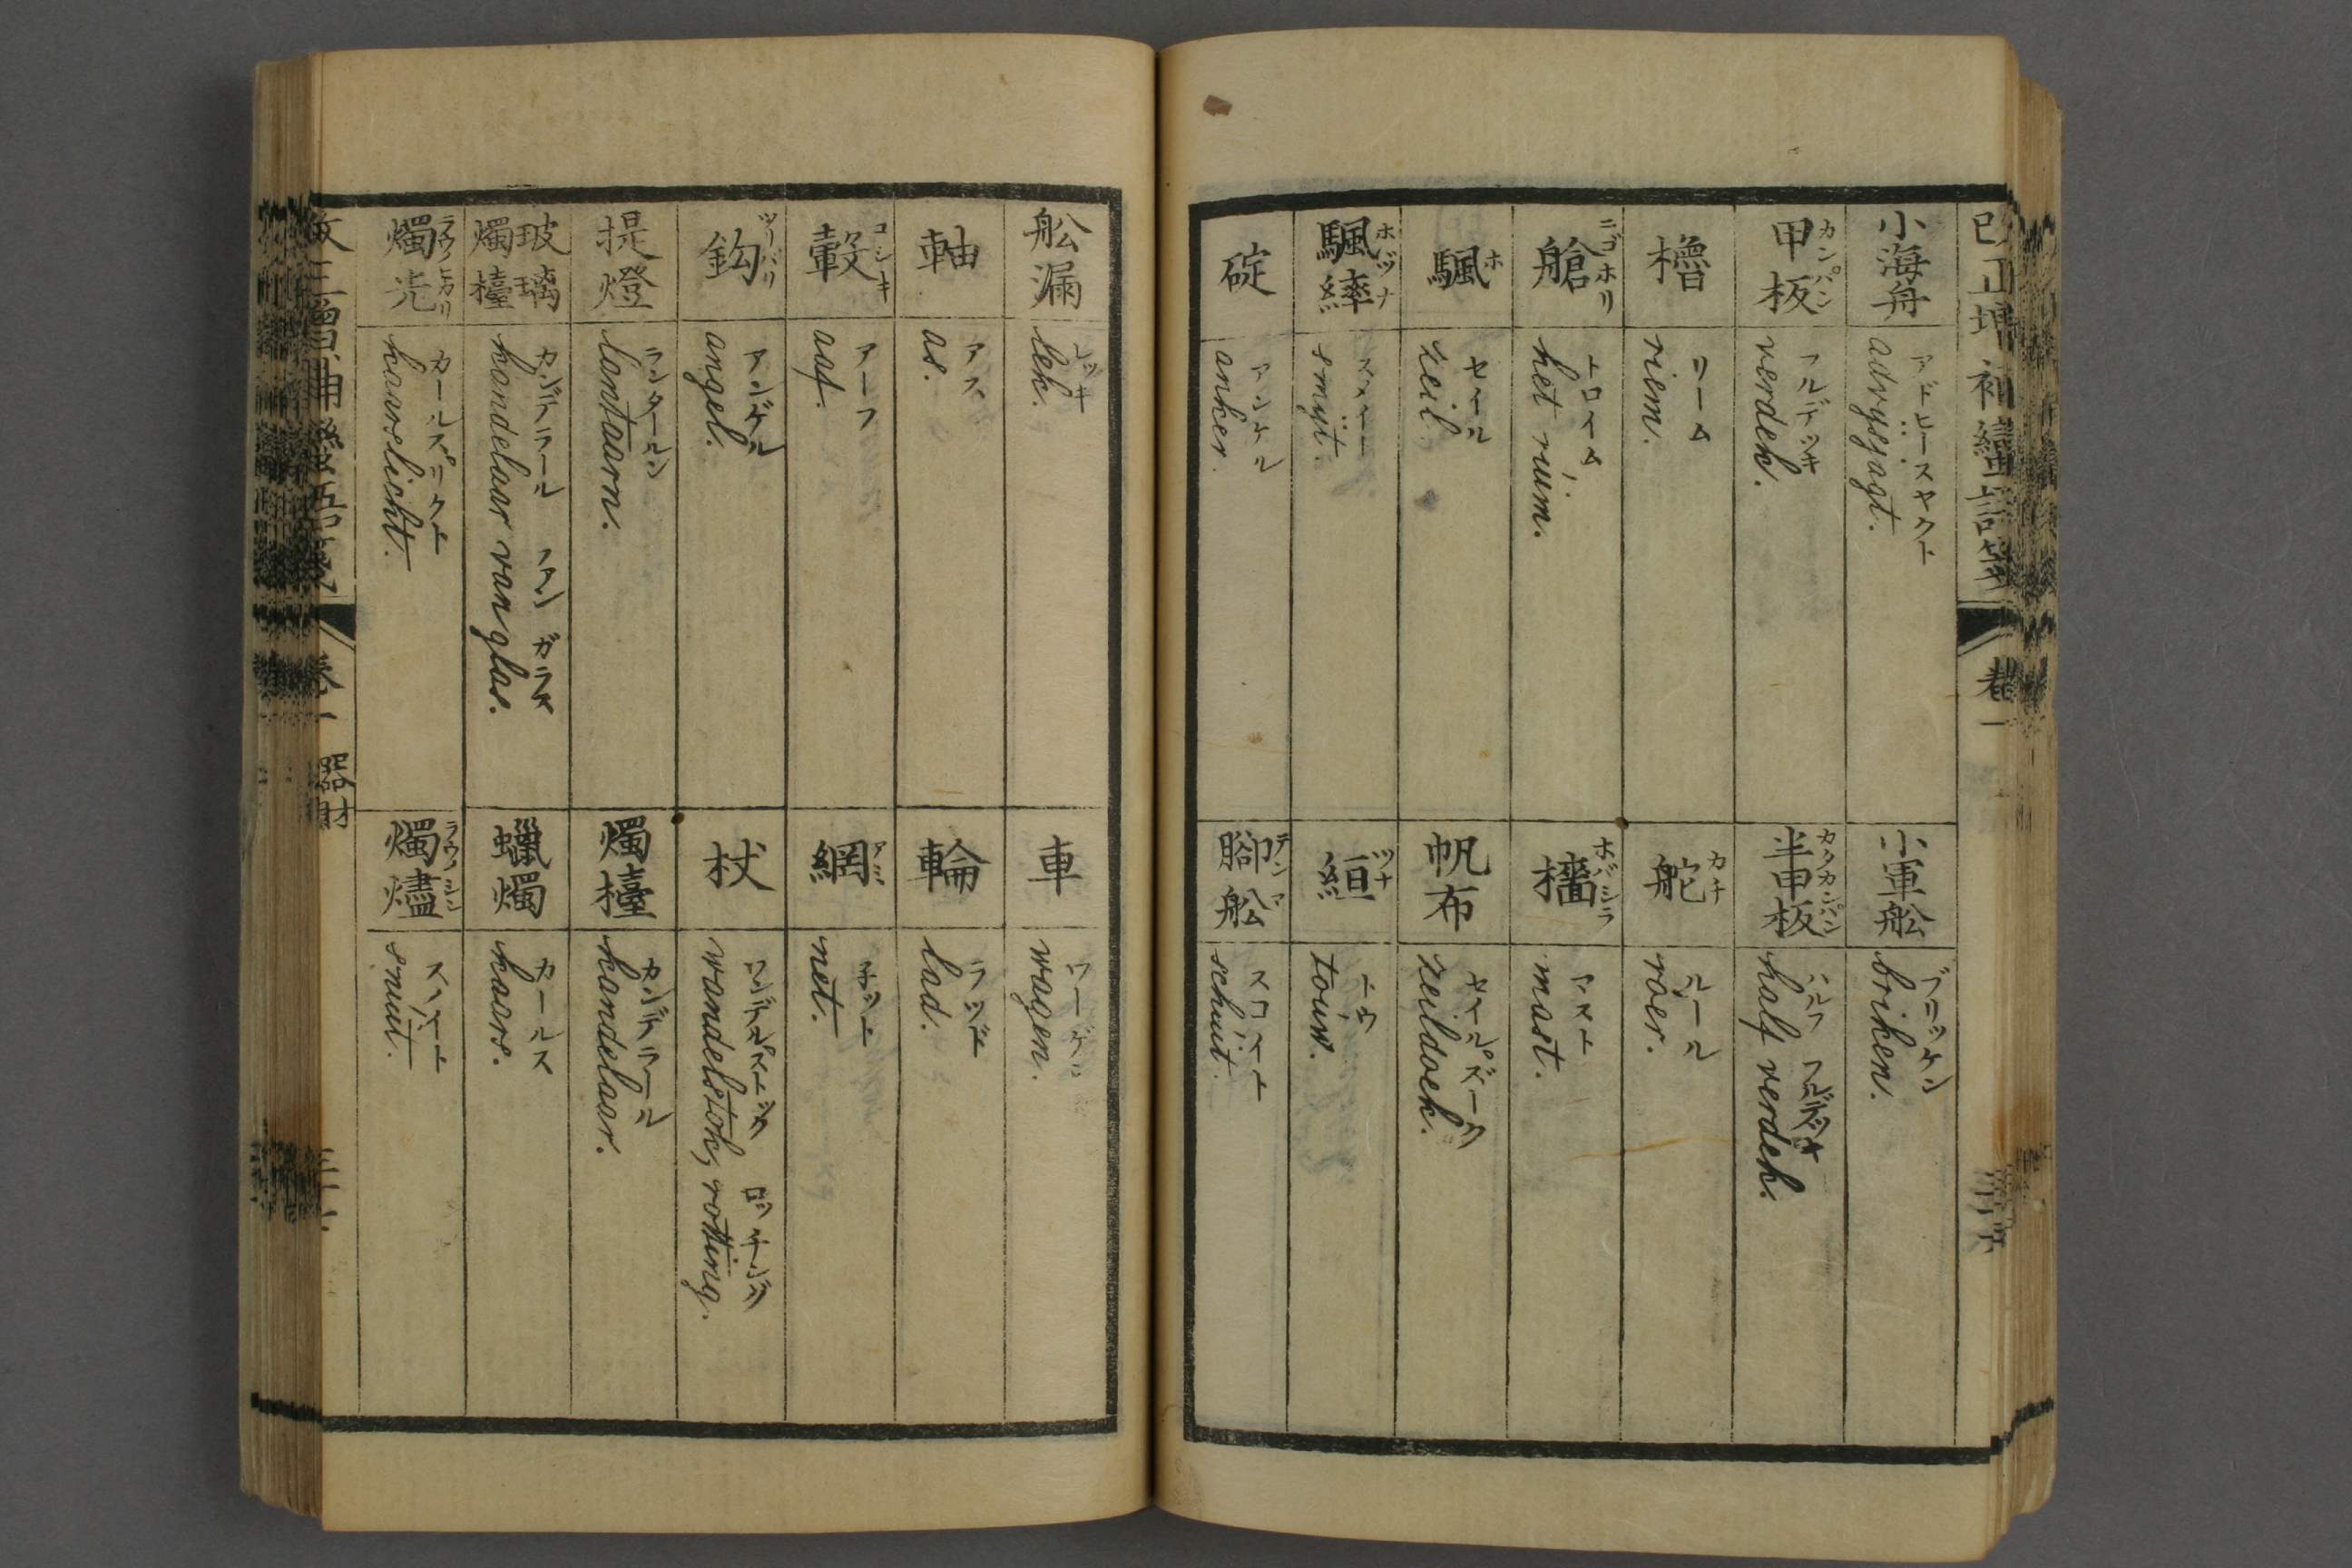 小海舟
アドヒースヤクト
advysyagt.
甲板
カンパン
フルデッキ
verdek.
櫓
リーム
riem.
艙
ニゴホリ
トロイム
het ruim.
颿
ホ
セイル
zeil.
颿繂
ホヅナ
スメイト
smyt.
碇
アンケル
anker.
小軍舩
ブリッケン
briken.
半甲板
カタカンパン
ハルフ フルデッキ
half verdek.
舵
カチ
ルール
roer.
檣
ホバシラ
マスト
mast.
帆布
セイルヅーク
zeildoek.
絙
ツナ
トウ
touw.
腳舩
テンマ
スコイト
schuit.
舩漏
レッキ
lek.
軸
アス
as.
轂
コシキ
アーフ
aaf.
鈎
ツリバリ
アンゲル
angel.
提燈
ランタールン
lantaarn.
玻璃燭檯
カンデラール ファン ガラス
kandelaar van glas.
燭光
ラウノヒカリ
カールスリクト
kaarslicht.
車
ワーゲン
wagen.
輪
ラット
lad.
網
アミ
ネット
net.
杖
ワンデルストック ロッチング
wandelstok, rotting.
燭檯
カンデラール
kandelaar.
蠟燭
カールス
kaars.
燭燼
ラウノシン
スノイト
snuit.
卷一 器財